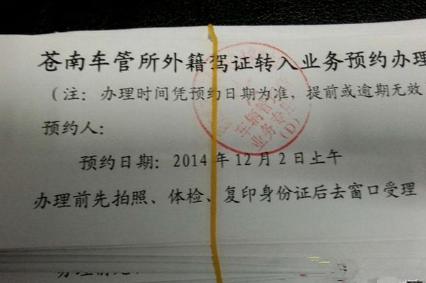 苍南车管所外籍驾证转入业务预约办理
（注：办理时间凭预约日期为准，提前或逾期无效
预约人：
预约日期：2014年12月2日上午
办理前先拍照、体检、复印身份证后去窗口受理
车辆管
业务专
(D)